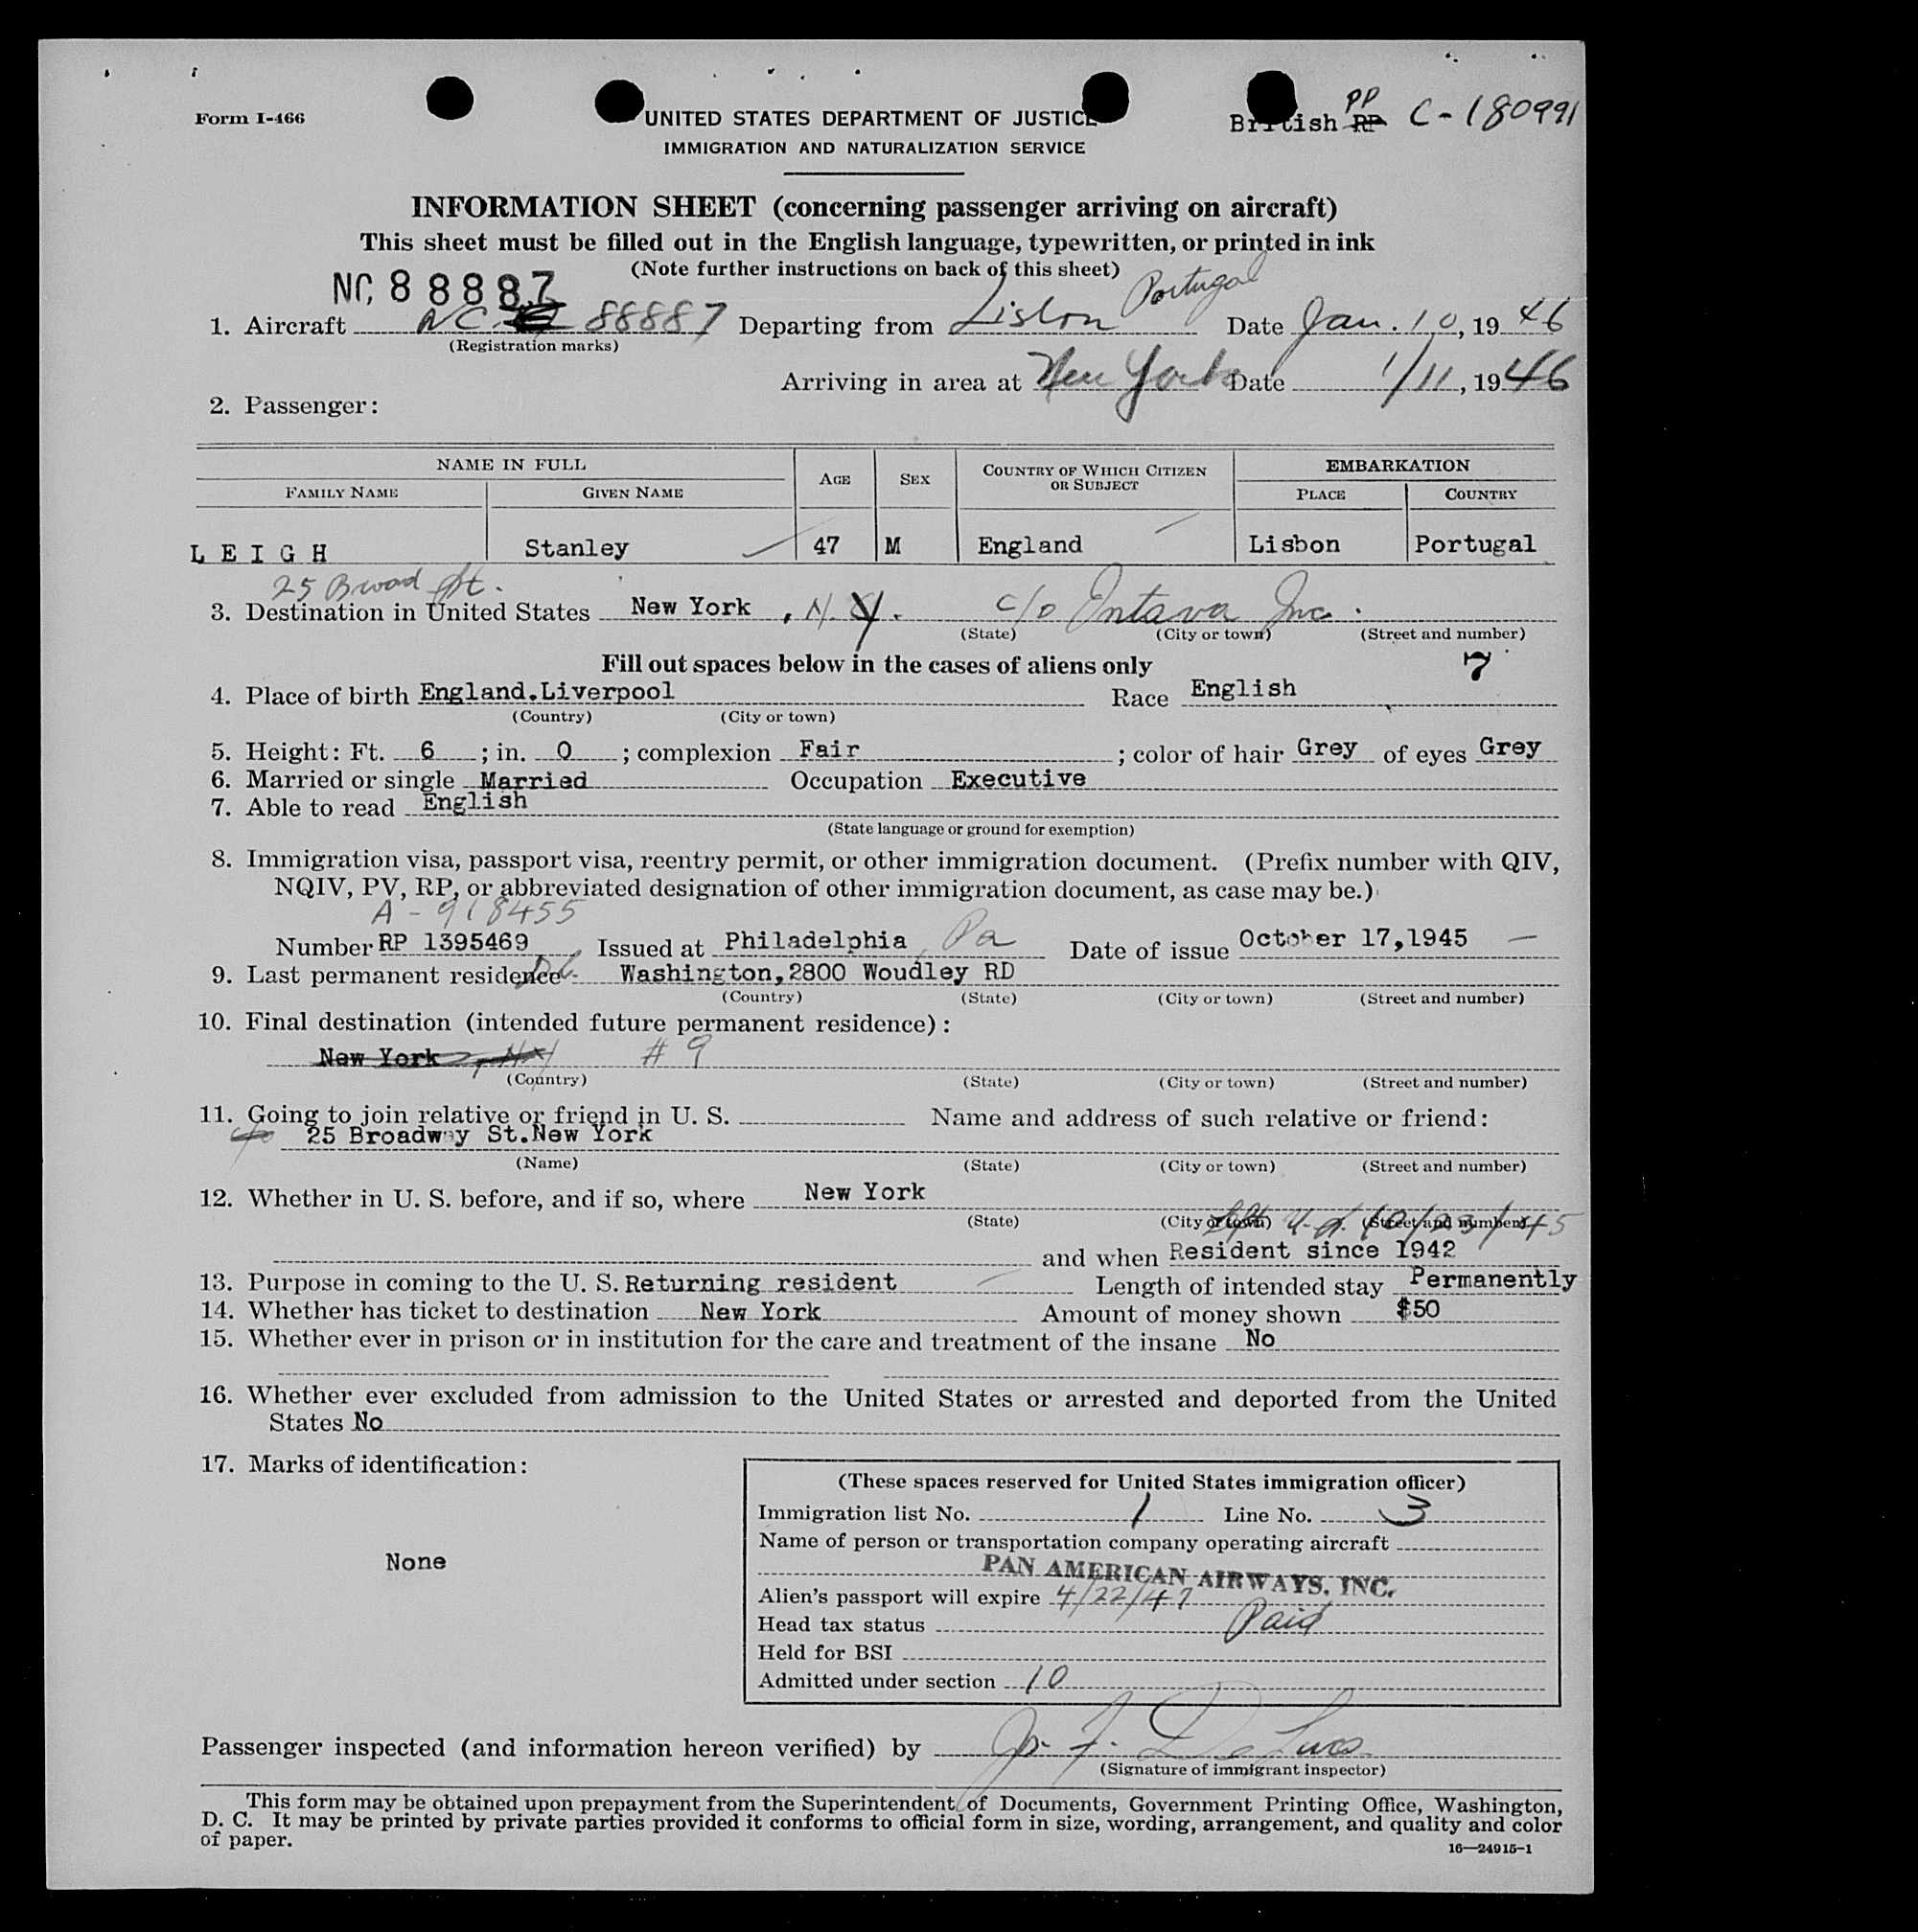 Form I-466
UNITED STATES DEPARTMENT OF JUSTICE
British RP PP C-180991
IMMIGRATION AND NATURALIZATION SERVICE
INFORMATION SHEET (concerning passenger arriving on aircraft)
This sheet must be filled out in the English language, typewritten, or printed in ink
(Note further instructions on back of this sheet)
NC 88887
1. Aircraft NC 88887 Departing from Lisbon Portugal Date Jan. 10, 1946
(Registration marks)
Arriving in area at New York Date 1/11, 1946
2. Passenger:
NAME IN FULL
FAMILY NAME GIVEN NAME AGE SEX COUNTRY OF WHICH CITIZEN OR SUBJECT EMBARKATION
PLACE COUNTRY
LEIGH Stanley 47 M England Lisbon Portugal
25 Broad St.
3. Destination in United States New York, N.Y. c/o Intava Inc.
(State) (City or town) (Street and number)
Fill out spaces below in the cases of aliens only 7
4. Place of birth England.Liverpool Race English
(Country) (City or town)
5. Height: Ft. 6; in. 0; complexion Fair; color of hair Grey of eyes Grey
6. Married or single Married Occupation Executive
7. Able to read English
(State language or ground for exemption)
8. Immigration visa, passport visa, reentry permit, or other immigration document. (Prefix number with QIV,
NQIV, PV, RP, or abbreviated designation of other immigration document, as case may be.)
A-918455
Number RP 1395469 Issued at Philadelphia, Pa Date of issue October 17,1945
9. Last permanent residence DC. Washington,2800 Woudley RD
(Country) (State) (City or town) (Street and number)
10. Final destination (intended future permanent residence):
New York, NY #9
(Country) (State) (City or town) (Street and number)
11. Going to join relative or friend in U. S. Name and address of such relative or friend:
c/o 25 Broadway St.New York
(Name) (State) (City or town) (Street and number)
12. Whether in U. S. before, and if so, where New York
(State) (City or town) (Street and number)
Left U.S. 10/23/45
and when Resident since 1942
13. Purpose in coming to the U. S. Returning resident Length of intended stay Permanently
14. Whether has ticket to destination New York Amount of money shown $50
15. Whether ever in prison or in institution for the care and treatment of the insane No
16. Whether ever excluded from admission to the United States or arrested and deported from the United
States No
17. Marks of identification:
None
(These spaces reserved for United States immigration officer)
Immigration list No. 1 Line No. 3
Name of person or transportation company operating aircraft
PAN AMERICAN AIRWAYS, INC.
Alien's passport will expire 4/22/47
Head tax status Paid
Held for BSI
Admitted under section 10
Passenger inspected (and information hereon verified) by
(Signature of immigrant inspector)
This form may be obtained upon prepayment from the Superintendent of Documents, Government Printing Office, Washington,
D. C. It may be printed by private parties provided it conforms to official form in size, wording, arrangement, and quality and color
of paper.
16—24915-1